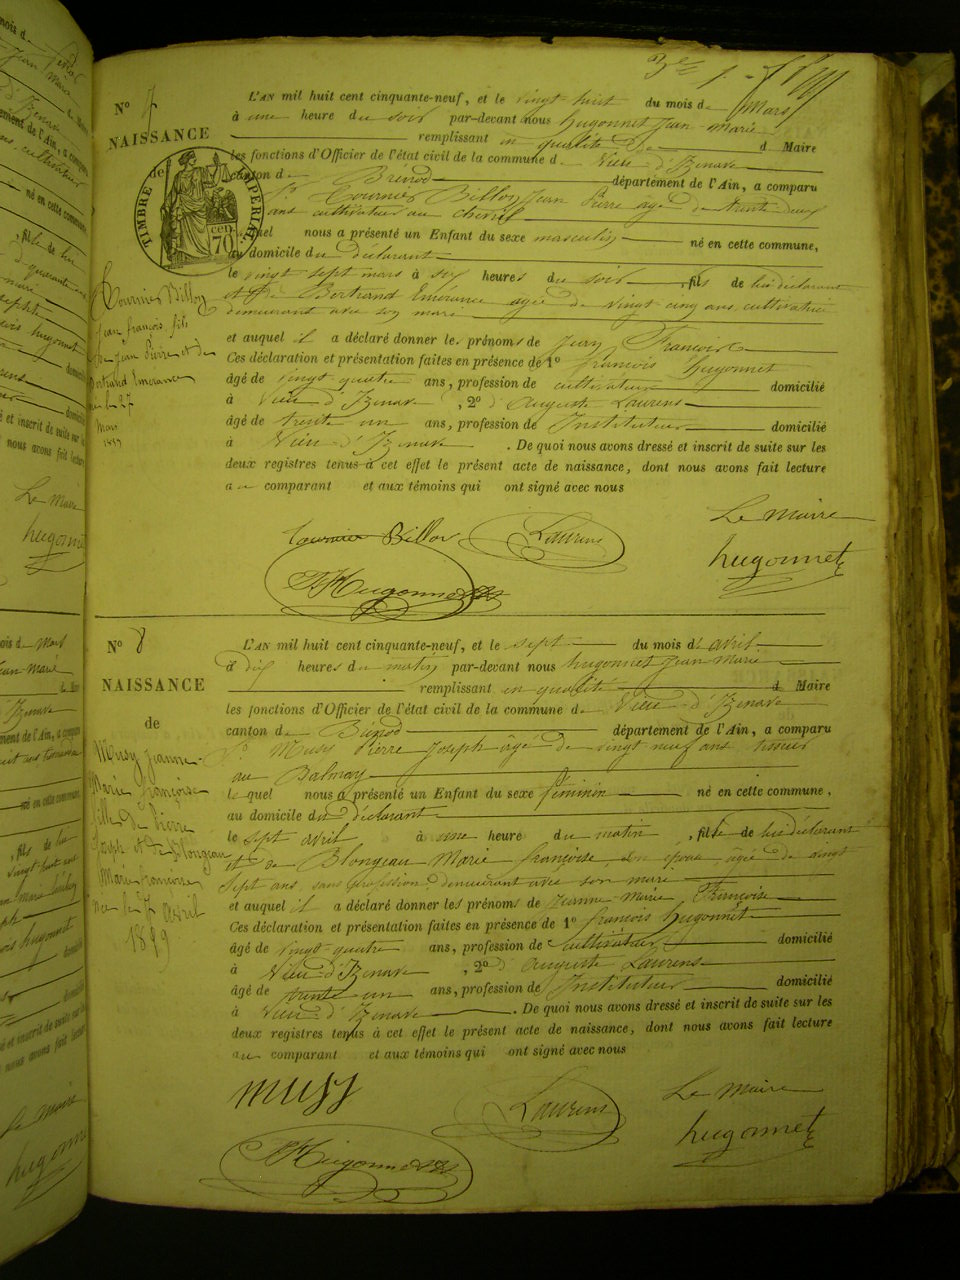 N° 7
NAISSANCE
de
TIMBRE IMPERIAL
70 cen
Tournier Billon
Jean françois, fils
de Jean Pierre et de
Bertrand Emérance
né le 27
Mars
1859
L'AN mil huit cent cinquante-neuf, et le vingt huit du mois de Mars
à une heure du soir par-devant nous hugonnet Jean-marie
remplissant en qualité de d Maire
les fonctions d'Officier de l'état civil de la commune d Vieu d'Izenave
canton de Brénod département de l'Ain, a comparu
Sr. Tournier Billon Jean Pierre agé de trente deux
ans cultivateur au chevril
lequel nous a présenté un Enfant du sexe masculin né en cette commune,
au domicile du déclarant
le vingt sept mars à six heures du soir, fils de lui déclarant
et de Bertrand Emérance agée de vingt cinq ans cultivatrice
demeurant avec son mari
et auquel il a déclaré donner les prénoms de Jean François
Ces déclaration et présentation faites en présence de 1° françois hugonnet
âgé de vingt quatre ans, profession de cultivateur domicilié
à Vieu d'Izenave, 2° d'Auguste Laurens
âgé de trente un ans, profession de Instituteur domicilié
à Vieu d'Izenave. De quoi nous avons dressé et inscrit de suite sur les
deux registres tenus à cet effet le présent acte de naissance, dont nous avons fait lecture
au comparant et aux témoins qui ont signé avec nous
Tournier Billon Laurens Le Maire
hugonnet
Hugonnet
N° 8
NAISSANCE
de
Musy Jeanne-
Marie françoise
fille de Pierre
Joseph et de Blongeau
Marie françoise
née le 7 Avril
1859
L'AN mil huit cent cinquante-neuf, et le sept du mois d'avril
à dix heures du matin par-devant nous hugonnet Jean Marie
remplissant en qualité d Maire
les fonctions d'Officier de l'état civil de la commune de Vieu d'Izenave
canton de Brénod département de l'Ain, a comparu
Sr. Musy Pierre Joseph âgé de vingt neuf ans tisseur
au Balmay
le quel nous a présenté un Enfant du sexe féminin né en cette commune,
au domicile du déclarant
le sept avril à une heure du matin, fille de lui déclarant
et de Blongeau Marie françoise, son épouse âgée de vingt
sept ans, sans profession, demeurant avec son mari
et auquel il a déclaré donner les prénoms de Jeanne Marie Françoise
Ces déclaration et présentation faites en présence de 1° françois hugonnet
âgé de vingt quatre ans, profession de cultivateur domicilié
à Vieu d'Izenave, 2° d'Auguste Laurens
âgé de trente un ans, profession de Instituteur domicilié
à Vieu d'Izenave. De quoi nous avons dressé et inscrit de suite sur les
deux registres tenus à cet effet le présent acte de naissance, dont nous avons fait lecture
au comparant et aux témoins qui ont signé avec nous
musy Laurens Le Maire
hugonnet
Hugonnet